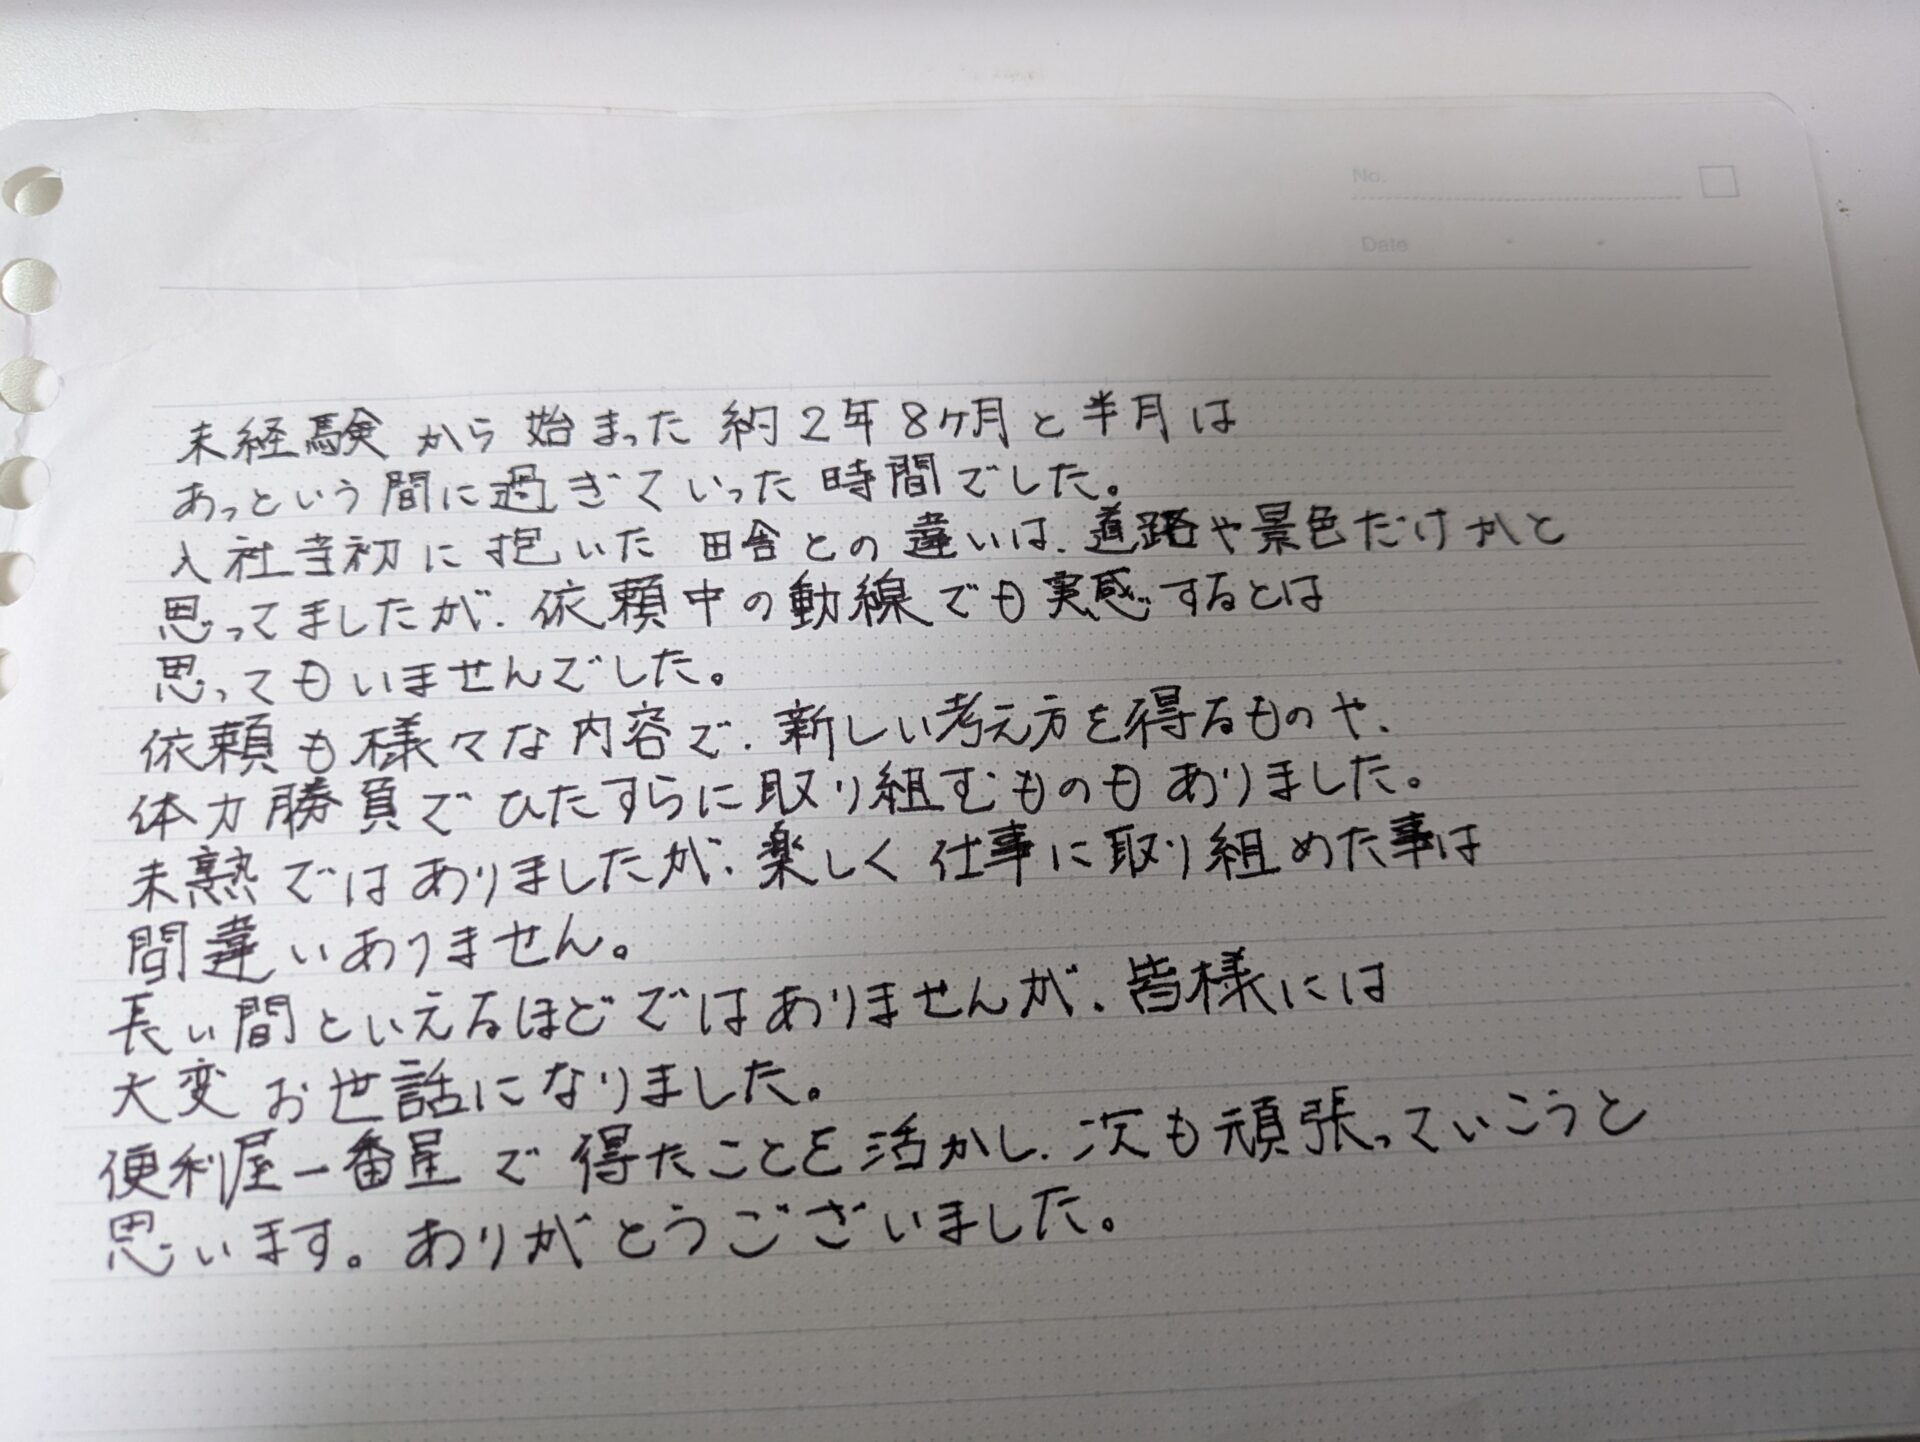 No.
Date
未経験から始まった約2年8ヶ月と半月は
あっという間に過ぎていった時間でした。
入社当初に抱いた田舎との違いは、道路や景色だけかと
思ってましたが、依頼中の動線でも実感するとは
思ってもいませんでした。
依頼も様々な内容で、新しい考え方を得るものや、
体力勝負でひたすらに取り組むものもありました。
未熟ではありましたが、楽しく仕事に取り組めた事は
間違いありません。
長い間といえるほどではありませんが、皆様には
大変お世話になりました。
便利屋一番星で得たことを活かし、次も頑張っていこうと
思います。ありがとうございました。